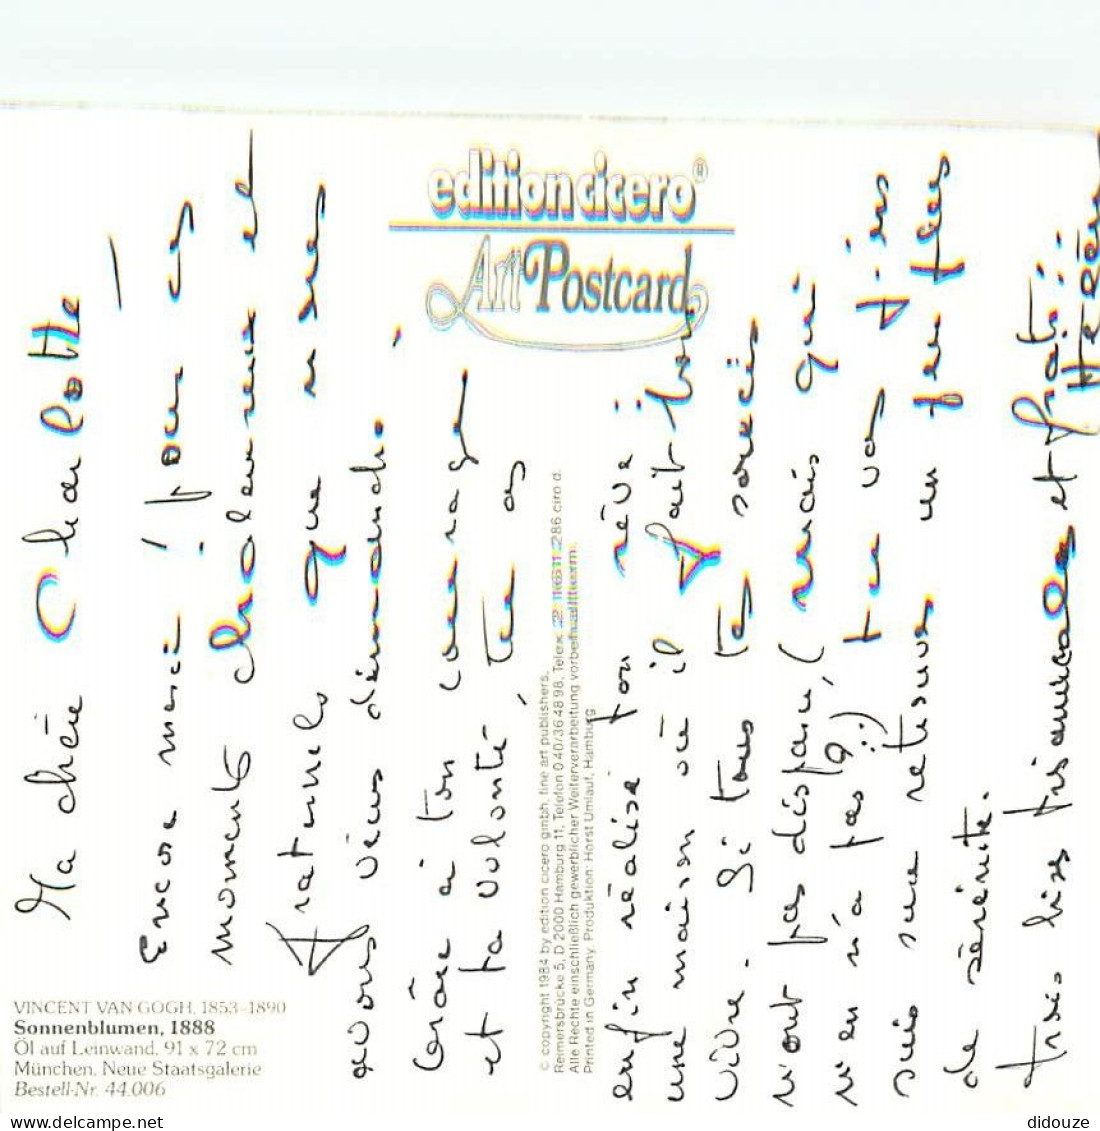 edition cicero®
Art Postcard
Ma chère Charlotte
Encore merci pour ces
moments chaleureux et
fraternels que nous
avons vécus dimanche.
Grâce à ton courage
et ta volonté, tu as
enfin réalisé ton rêve :
une maison où il fait bon
vivre. Si tous tes soucis
n'ont pas disparu, (mais qui
n'en n'a pas ?) tu vas j'en
suis sure retrouver un peu plus
de sérénité.
Trois bises très amicales et frat.:
Hélène
© copyright 1984 by edition cicero gmbh, fine art publishers,
Reimersbrücke 5, D 2000 Hamburg 11, Telefon 0 40/36 48 98, Telex 286 ciro d.
Alle Rechte einschließlich gewerblicher Weiterverarbeitung vorbehalten.
Printed in Germany. Produktion: Horst Umlauf, Hamburg
VINCENT VAN GOGH, 1853–1890
Sonnenblumen, 1888
Öl auf Leinwand, 91 x 72 cm
München, Neue Staatsgalerie
Bestell-Nr. 44.006
didouze